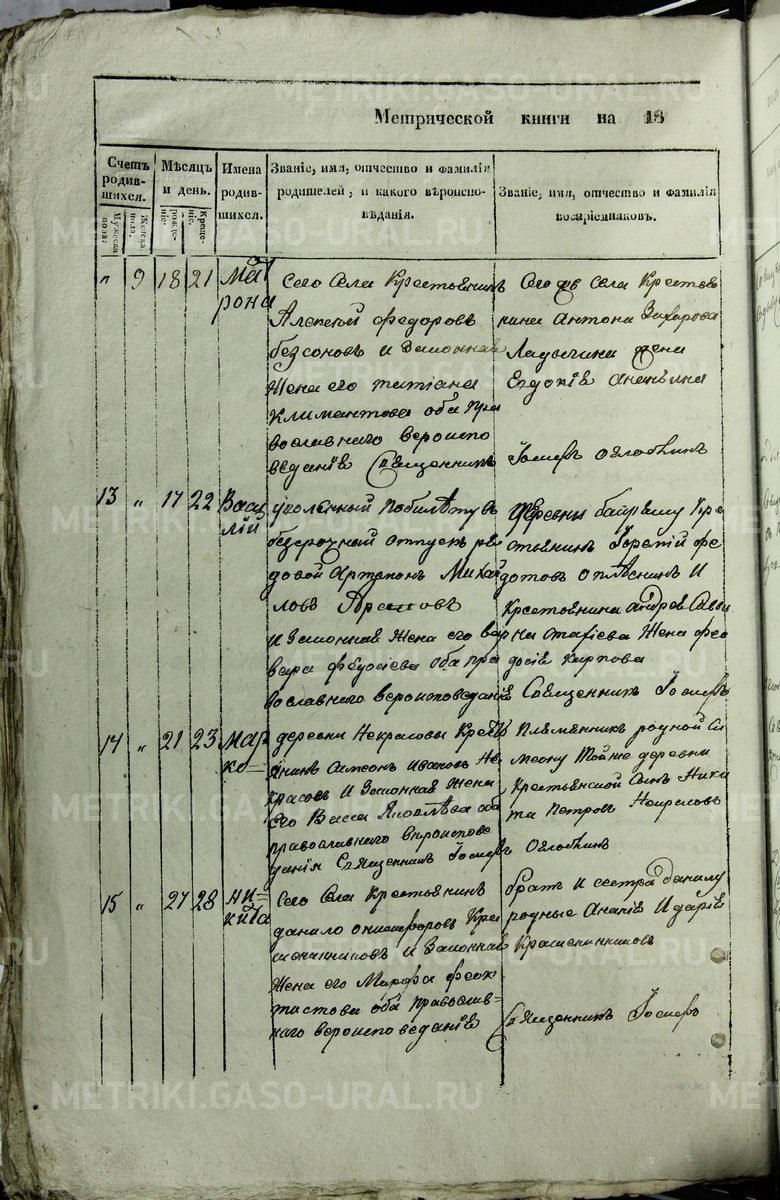 Метрической книги на 18
Счетъ родившихся.
Мѣсяцъ и день.
Имена родившихся.
Званіе, имя, отчество и фамилія родителей, и какого вѣроисповѣданія.
Званіе, имя, отчество и фамилія воспріемниковъ.
Мужеска пола.
Женска пола.
рожденіе.
Крещеніе.
" 9 18 21 Матрона
Сего Села Крестьянинъ
Алексѣй Федоровъ
безсоновъ и Законная
Жена его татіана
Климантова оба пра
вославнаго вероиспо
веданія Священникъ
Сего Села Крестья
нина Антона Захарова
Ладыгина жена
Евдокія ананьина
Іосифъ Оглоблинъ
13 " 17 22 Василій
уволенный по билѣту въ
безсрочный отпускъ ря
довой Артамон Михай
ловъ
И Законная Жена его вар
вара федосіева оба пра
вославнаго вероисповеданія
деревни Кре
стьянинъ фе
дотовъ И
Крестьянина андрея
Жена фео
досія карпова
Священникъ Іосифъ
14 " 21 23 Марко
деревни Некрасовы Кресть
янинъ Симеонъ ивановъ Не
красовъ И Законная Жена
его Васса Яковлева оба
православнаго вероиспове
данія Священникъ Іосифъ
Племянникъ родной Си
меону Той же деревни
Крестьянской Сынъ Ники
та Петровъ Некрасовъ
Оглоблинъ
15 " 27 28 Никита
Сего Села Крестьянинъ
данило онисифоровъ Кра
шенинниковъ и Законная
Жена его Марфа феок
тистова оба православ=
наго вероисповеданія
братъ и сестра данилу
родные Ананія И дарія
Крашенинниковъ
Священникъ Іосифъ
METRIKI.GASO-URAL.RU